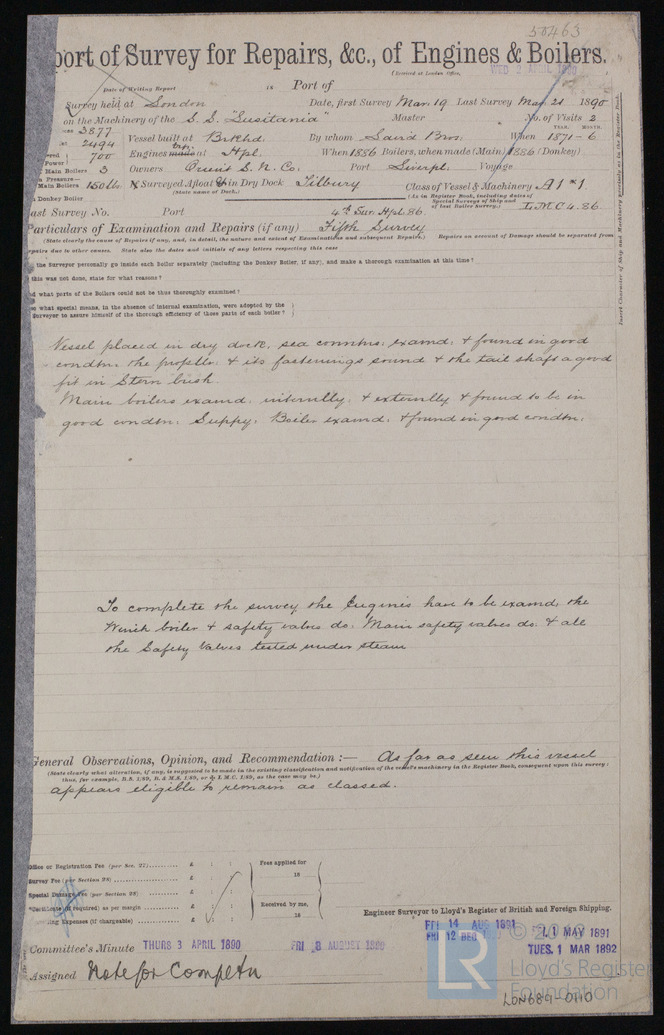 50463
port of Survey for Repairs, &c., of Engines & Boilers.
(Received at London Office,
WED 2 APRIL 1890
Date of Writing Report
Port of
Survey held at London Date, first Survey Mar. 19 Last Survey Mar. 21 1890
on the Machinery of the S.S. "Lusitania" Master No. of Visits 2
3877
2494 Vessel built at Birkhd. By whom Laird Bros. When 1871-6
YEAR. MONTH.
700 Engines made at Hpl. When 1886 Boilers, when made (Main) 1886 (Donkey)
Power)
Main Boilers 3 Owners Orient S. N. Co. Port Liverpl. Voyage
Pressure—
Main Boilers 150lb. Surveyed Afloat or in Dry Dock Tilbury Class of Vessel & Machinery A1 *1
(State name of Dock.)
(As in Register Book, including dates of Special Surveys of Ship and of last Boiler Survey.) L.M.C 4.86.
Donkey Boiler
ast Survey No. Port 4th Sur. Hpl. 86.
articulars of Examination and Repairs (if any) Fifth Survey
(State clearly the cause of Repairs if any, and, in detail, the nature and extent of Examinations and subsequent Repairs.) Repairs on account of Damage should be separated from
repairs due to other causes. State also the dates and initials of any letters respecting this case
the Surveyor personally go inside each boiler separately (including the Donkey Boiler, if any), and make a thorough examination at this time?
this was not done, state for what reasons?
d what parts of the Boilers could not be thus thoroughly examined?
what special means, in the absence of internal examination, were adopted by the
Surveyor to assure himself of the thorough efficiency of those parts of each boiler?
Insert Character of Ship and Machinery precisely as in the Register Book.
Vessel placed in dry dock, sea conntns: examd: & found in good
condtn. the propller & its fastenings sound & the tail shaft a good
fit in Stern bush.
Main boilers examd: internlly: & externlly & found to be in
good condtn: Suppy: Boiler examd: & found in good condtn:
To complete the survey the Engines have to be examd, the
Winch boiler & safety valves do. Main safety valves do. & all
the Safety Valves tested under steam
General Observations, Opinion, and Recommendation :— As far as seen this vessel
(State clearly what alteration, if any, is suggested to be made in the existing classification and notification of the vessel's machinery in the Register Book, consequent upon this survey:
thus, for example, B.S. 1/89, B. & M.S. 1/89, or L.M.C. 1/89, as the case may be.)
appears eligible to remain as classed.
Office or Registration Fee (per Sec. 27) £ : : Fees applied for
Survey Fee (per Section 28) £ : : 18
Special Damage Fee (per Section 28) £ : :
Certificate (if required) as per margin £ : : Received by me,
ling Expenses (if chargeable) £ : : 18
Engineer Surveyor to Lloyd's Register of British and Foreign Shipping.
FRI 14 AUG 1891
FRI 12 DEC
MAY 1891
Committee's Minute THURS 3 APRIL 1890 FRI 8 AUGUST 1890 TUES. 1 MAR 1892
Assigned Note for Competn
LR
Lloyd's Register
Foundation
LON689-0110